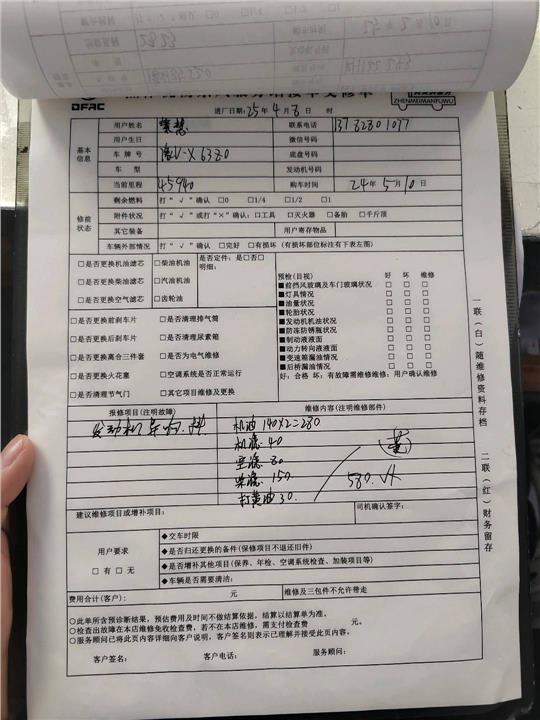 DFAC
ZHENMEIMANFUWU
进厂日期:25年4月8日 时
基本信息
用户姓名 联系电话 13782801077
用户生日 微信号码
车牌号 豫V-X6380 底盘号码
车型 发动机号码
当前里程 45940 购车时间 24年5月10日
修前状态
剩余燃料 打“√”确认 □0 □1/4 □1/2 □1
附件状况 打“√”或打“×”确认:□工具 □灭火器 □备胎 □千斤顶
其它装备 用户寄存物品
车辆外部情况 打“√”确认 □完好 □有损坏(有损坏部位标注有下表左图)
□是否更换机油滤芯 □柴油机油 是否定件:是□否□
明细:
□是否更换柴油滤芯 □汽油机油
□是否更换空气滤芯 □齿轮油
□是否更换前刹车片 □是否清理排气筒
□是否更换后刹车片 □是否清理尿素箱
□是否更换离合三件套 □是否为电气维修
□是否更换火花塞 □空调系统是否正常运行
□是否清理节气门 □其它项目维修及更换
预检(目视) 好 坏 维修
■前挡风玻璃及车门玻璃状况 □ □ □
■灯具情况 □ □ □
■油量状况 □ □ □
■轮胎状况 □ □ □
■发动机机油状况 □ □ □
■防冻防锈瓶状况 □ □ □
■制动液液面 □ □ □
■动力转向液液面 □ □ □
■变速箱漏油情况 □ □ □
■后桥漏油情况 □ □ □
好:合格 坏:有故障需维修维修:用户确认维修
报修项目(注明故障) 维修内容(注明维修部件)
发动机 机油 140×2=280
机滤 40
空滤 80
柴滤 150 580.
打黄油 30
建议维修项目或增补项目: 司机确认签字:
用户要求
□有 □无
◆交车时限
◆是否归还更换的备件(保修项目不退还旧件)
◆是否增补其他项目(保养、年检、空调系统检查、加装项目等)
◆车辆是否需要清洁:
费用合计(客户): 元 维修及三包件不允许带走
○此单所含预诊断结果,预估费用及时间不做结算依据,结算以结算单为准。
○检查出故障在本店维修免收检查费,若不在本店维修,需支付检查费 元。
○服务顾问已将此页内容详细向客户说明,客户签名则表示已理解并接受此页内容。
客户签名: 客户电话: 服务顾问:
一联(白)随维修资料存档
二联(红)财务留存